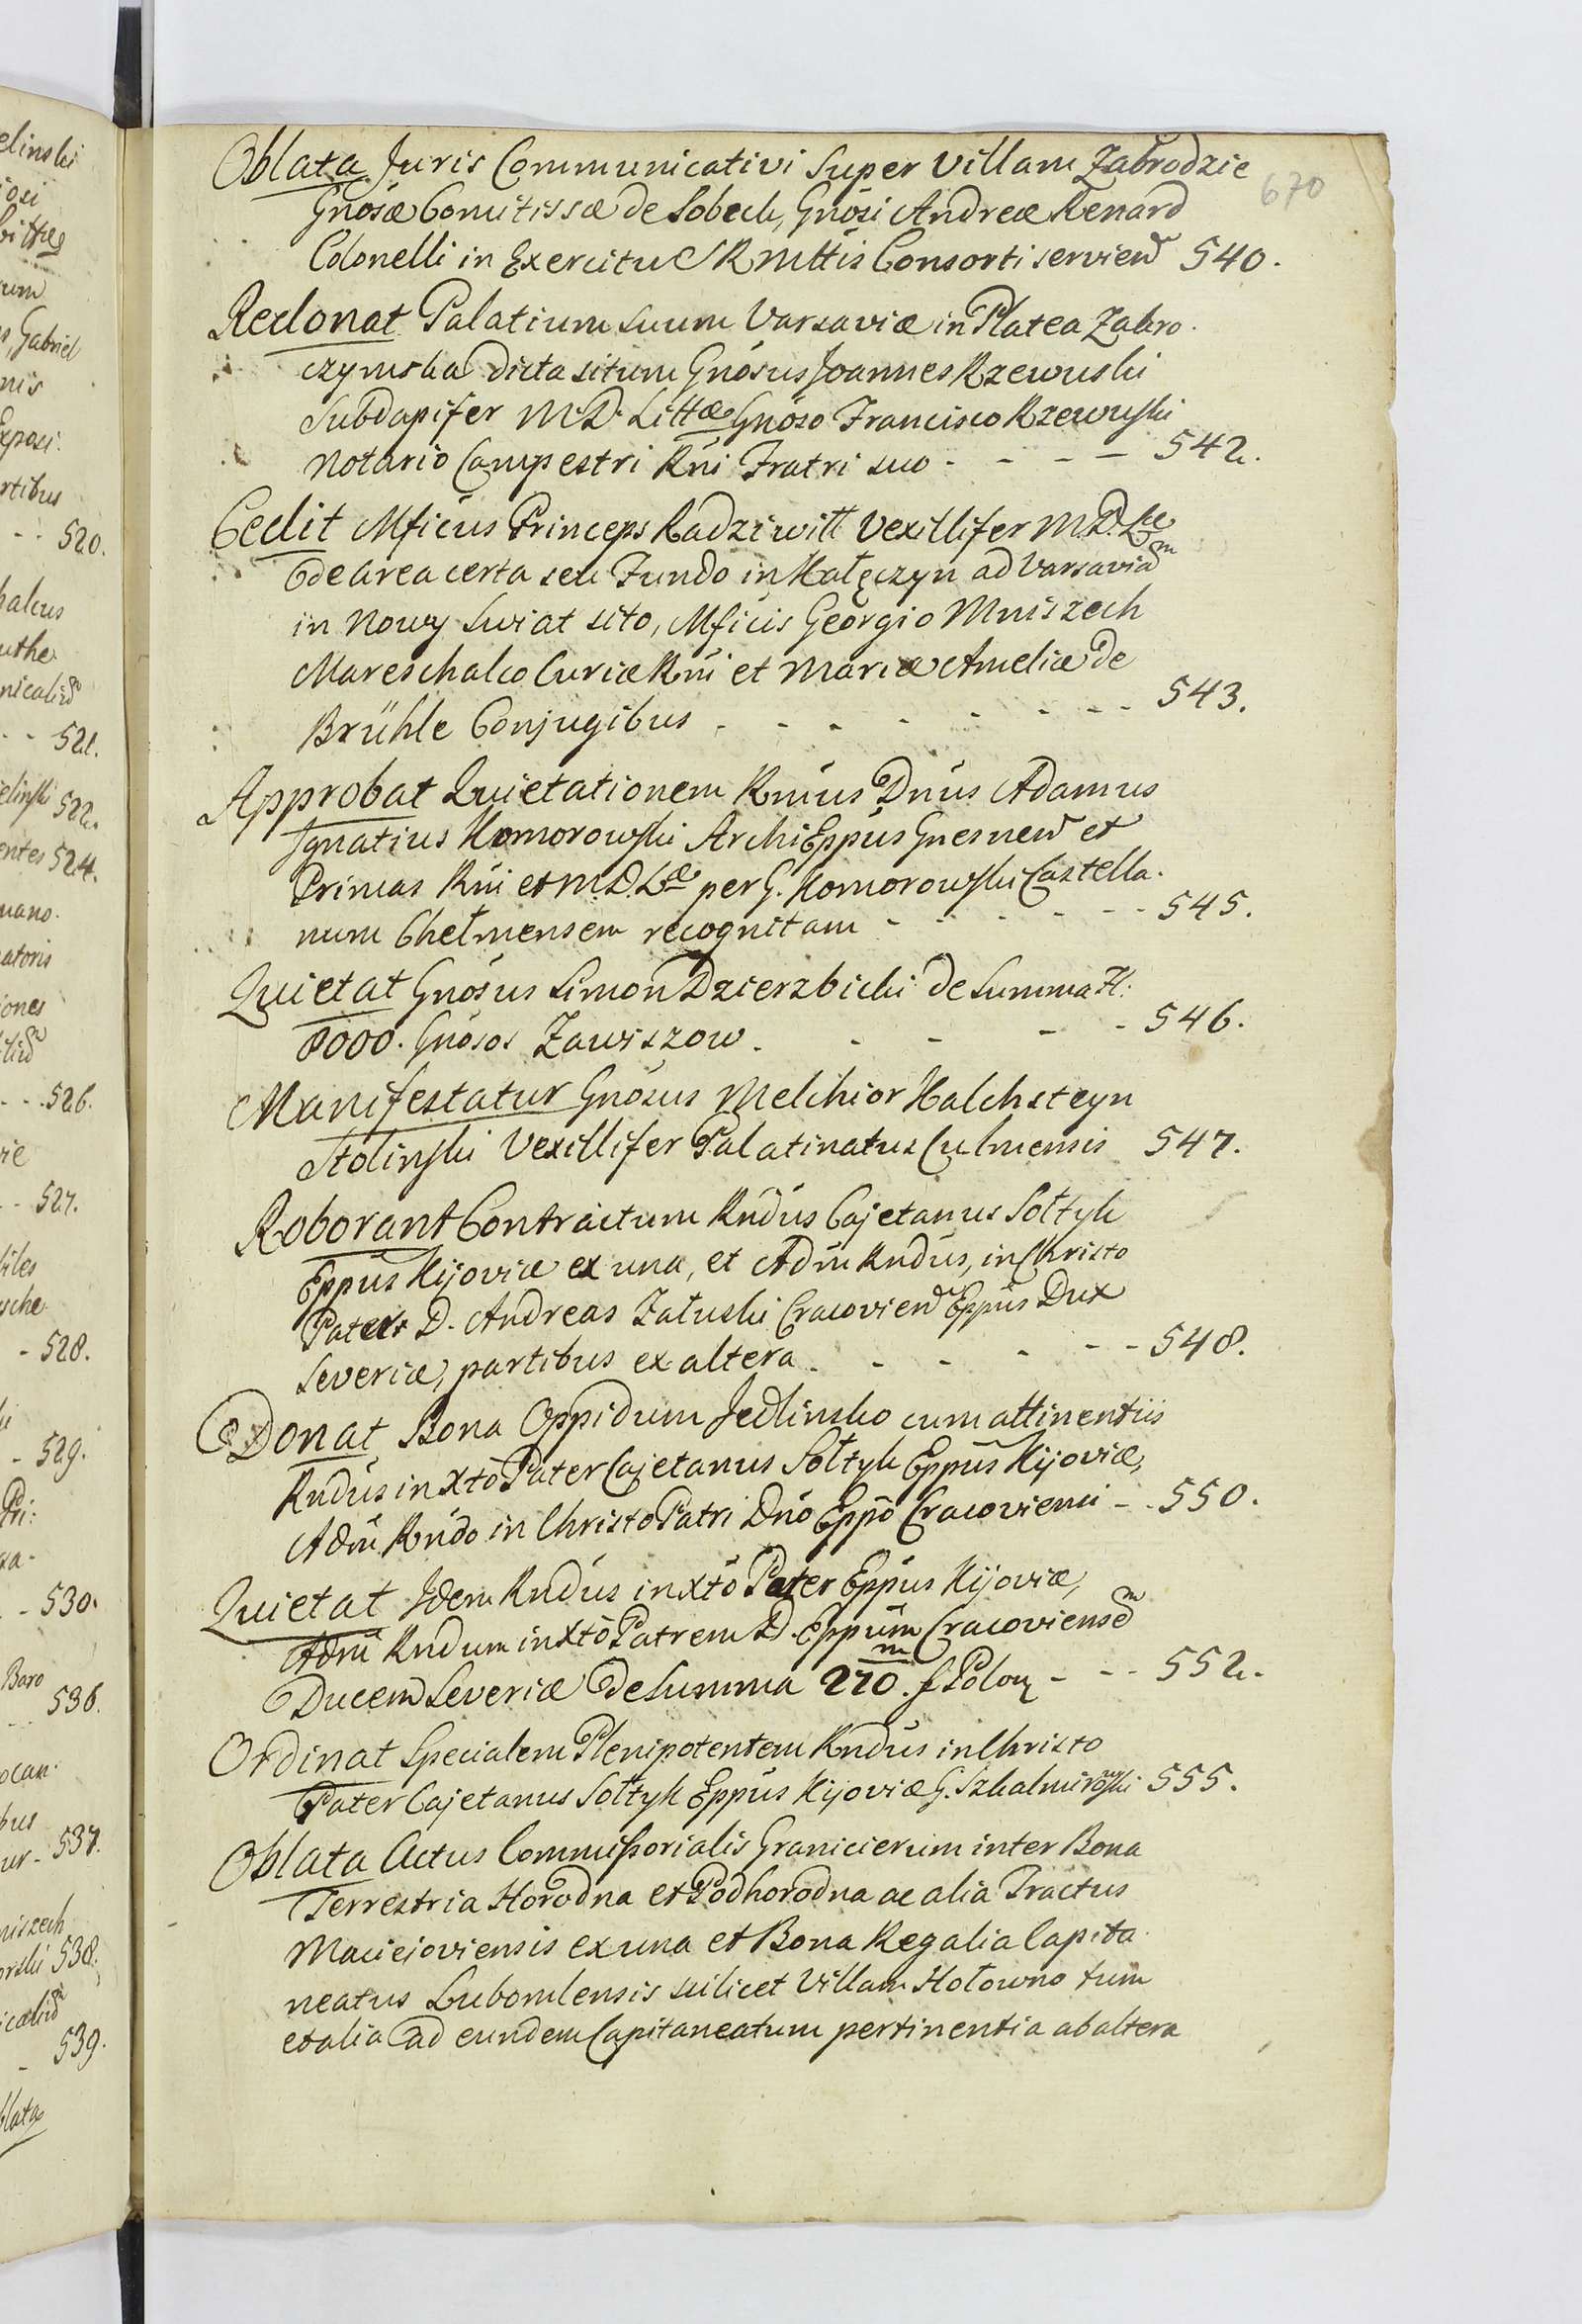 elinski
iosi
bittæ
um
s, Gabriel
nis
Exposi.
rtibus
- - 520.
halcus
uthe
nicalird
- - 521.
elinski 522.
entes 524.
mano.
atoris
iones
- - 526.
vie
- - 527.
biles
sche
- 528.
- 529.
Pri:
- - 530.
Baro
536.
ocan.
bus
ur - 537.
niszech
orski 538.
- 539.
blata
670
Oblata Juris Communicativi Super villam Zabrodzie
Gnosæ Comitissæ de Sobeck, Gnosi Andreæ Renard
Colonelli in Exercitu S R Mttis Consorti serviend 540.
Redonat Palatium suum Varsaviæ in Platea Zakro.
czymska dicta situm Gnosus Joannes Rzewuski
Subdapifer M.D. Littæ Gnoso Francisco Rzewuski
Notario Campestri Rni Fratri suo - - - - 542.
Cedit Mficus Princeps Radziwitt Vexillifer M.D.Læ
de area certa seu Fundo in Kałęczyn ad Varsaviam
in Nowy Swiat sito, Mficis Georgio Mniszech
Mareschalco Curiæ Rni et Mariæ Ameliæ de
Brühle Conjugibus - - - - - - - - 543.
Approbat Quietationem Rmus Dnus Adamus
Ignatius Komorowski ArchiEppus Gnesnend et
Primas Rni et M.D.Læ per G. Komorowski Castella.
num Chełmensem recognitam - - - - - - 545.
Quietat Gnosus Simon Dzierzbicki de Summa fl:
8000. Gnosos Zawiszow. - - - - 546.
Manifestatur Gnosus Melchior Kalchsteyn
Stolinski Vexillifer Palatinatus Culmensis 547.
Roborant Contractum Rndus Cajetanus Sołtyk
Eppus Kijoviæ ex una, et Adm Rndus, in Christo
Pater D. Andreas Załuski Cracoviend Eppus Dux
Severiæ, partibus ex altera. - - - - - 548.
Donat Bona Oppidum Jedlinsko cum attinentiis
Rndus in Xto Pater Cajetanus Sołtyk Eppus Kijoviæ,
Adm Rndo in Christo Patri Dno Eppo Cracoviensi - . 550.
Quietat Idem Rndus in Xto Pater Eppus Kijoviæ,
Adm Rndum in Xto Patrem D. Eppum Cracoviensem
Ducem Severiæ de Summa 270m. f Polon - - - 552.
Ordinat Specialem Plenipotentem Rndus in Christo
Pater Cajetanus Sołtyk Eppus Kijoviæ G. Szkalmirowski 555.
Oblata Actus Commissorialis Granicierum inter Bona
Terrestria Horodna et Podhorodna ac alia Tractus
Maciejoviensis ex una et Bona Regalia Capita.
neatus Lubomlensis scilicet Villam Hołowno tum
et alia ad eundem Capitaneatum pertinentia ab altera